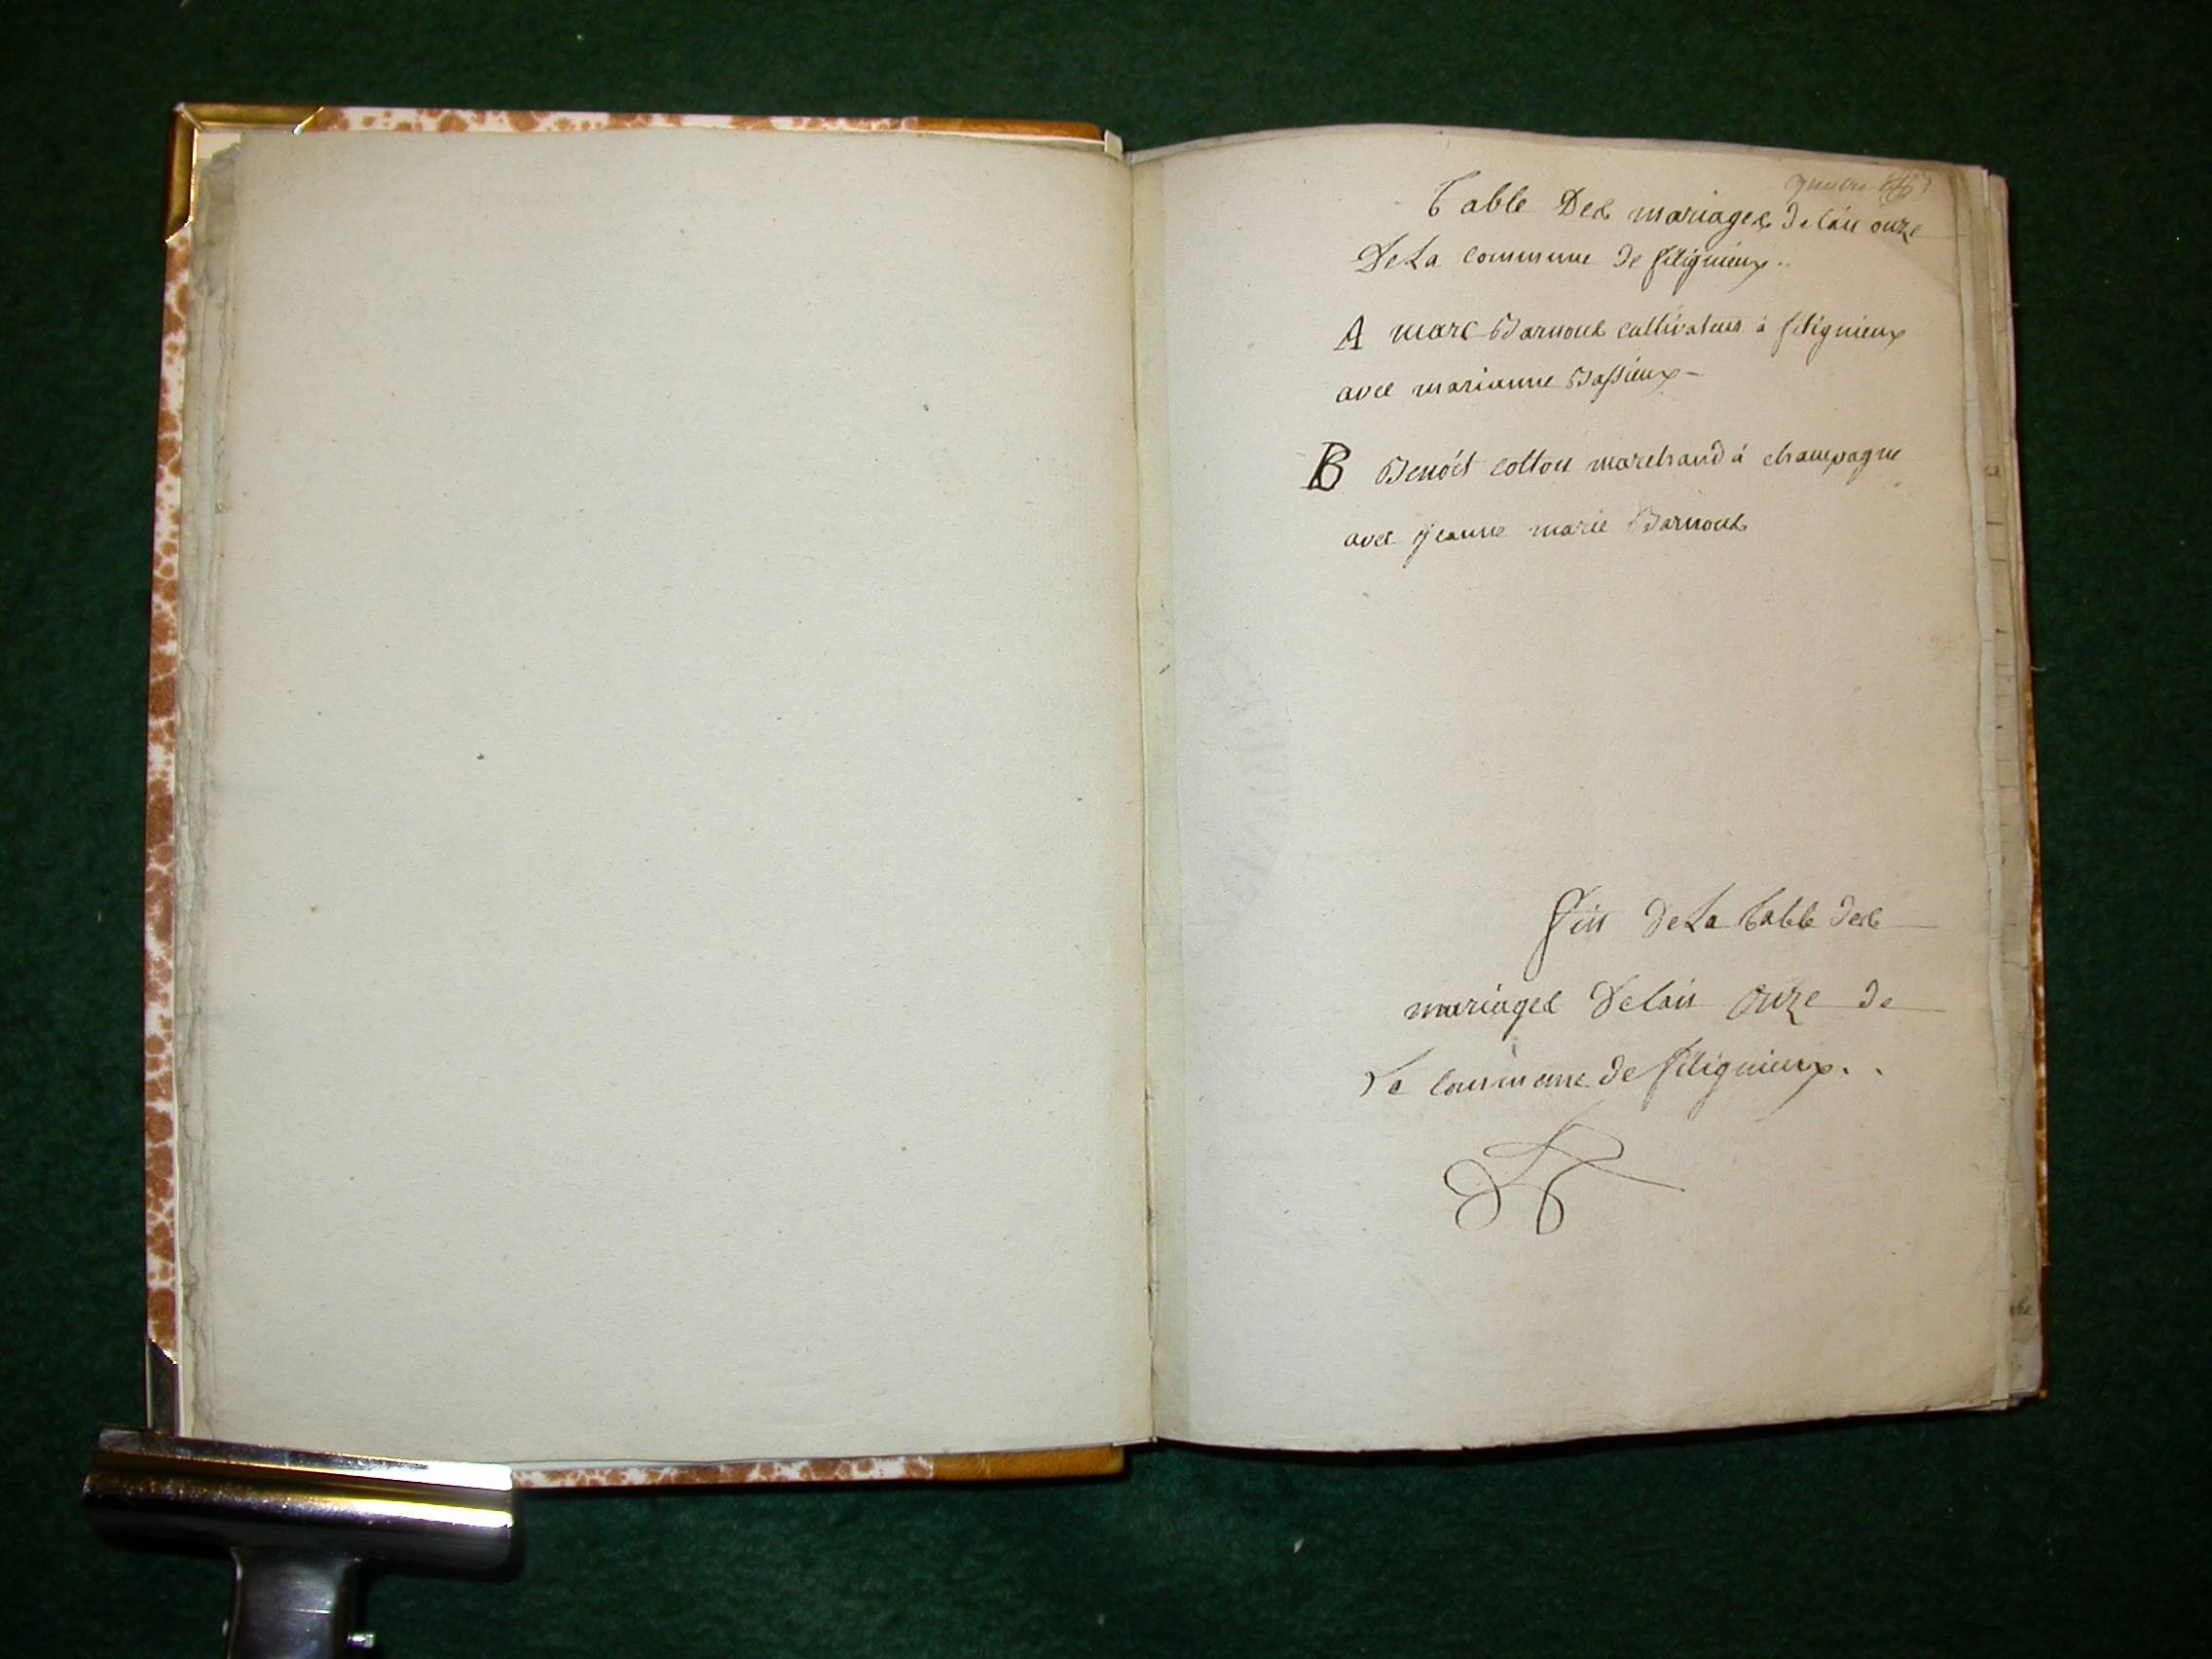 Table Des mariages de lan onze
De La commune de fitignieux..
A marc Barnoud cultivateur à fitignieux
avec marianne Bassieux -
B Benoît cotton marchand à champagne
avec jeanne marie Barnoud
fin de La table des
mariages De lan onze de
La commune de fitignieux..